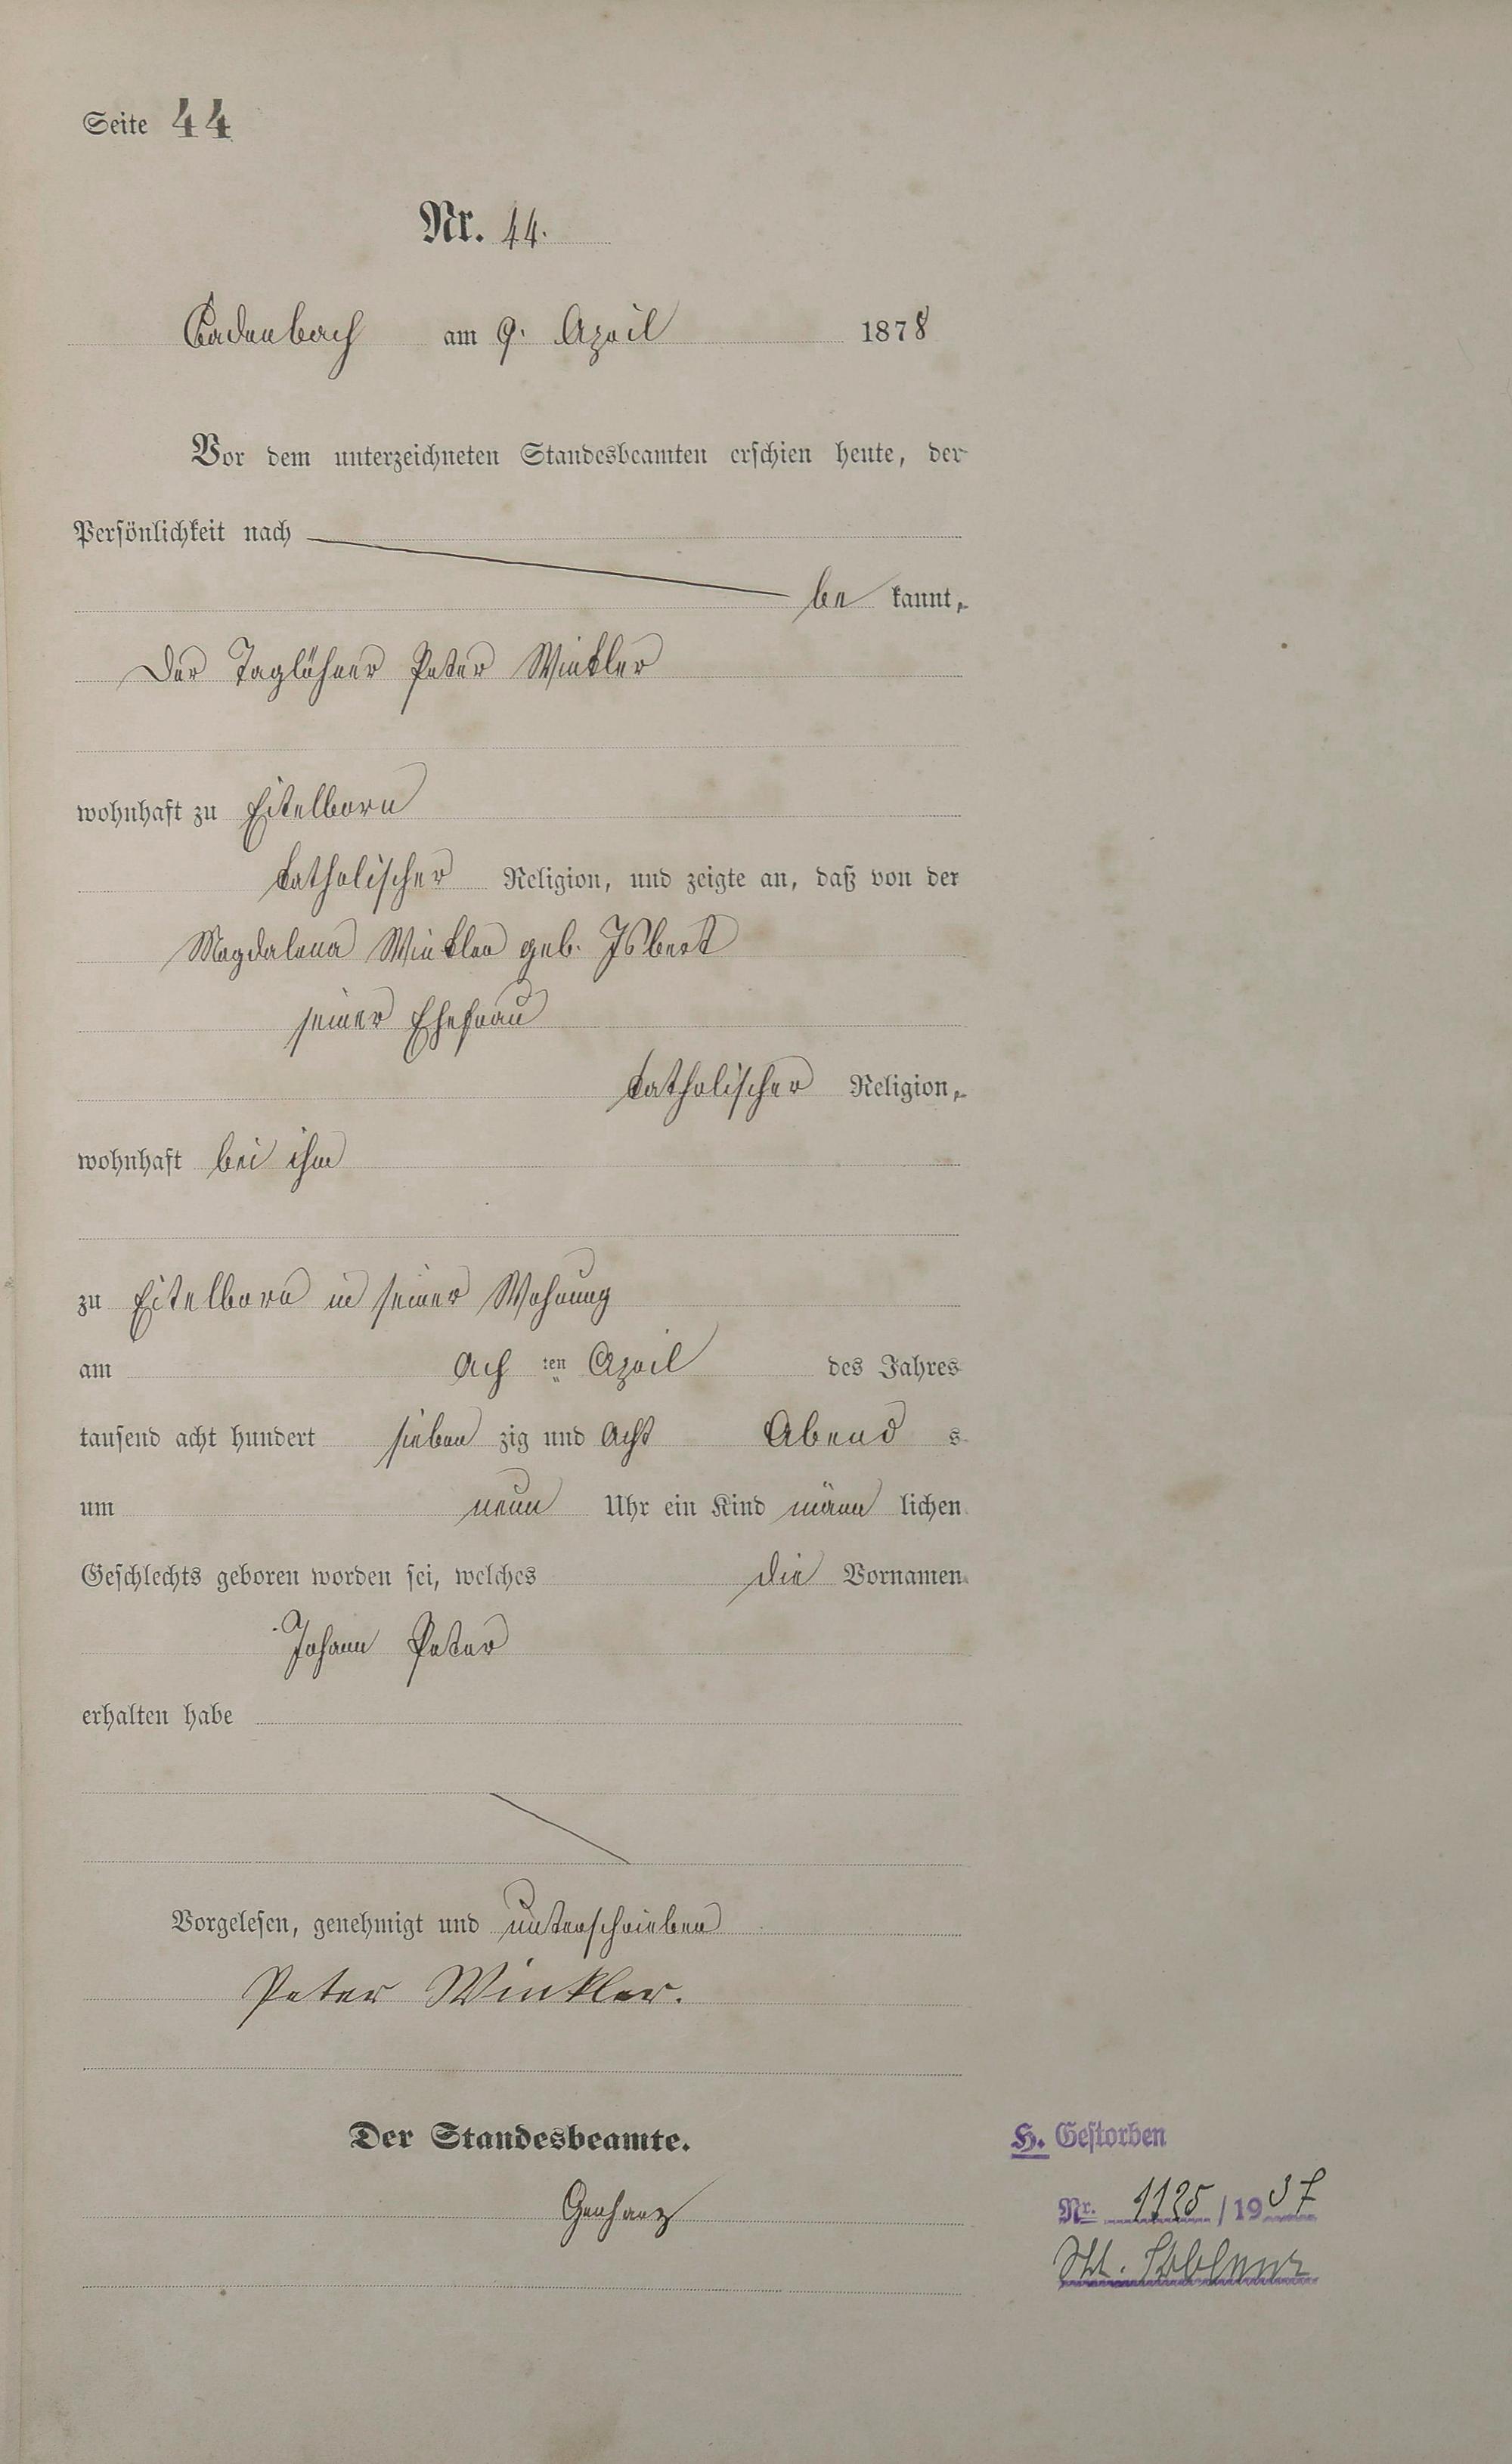 Seite 44
Nr. 44.
Cadenbach am 9. April 1878
Vor dem unterzeichneten Standesbeamten erschien heute, der
Persönlichkeit nach
be kannt,
Der Taglöhner Peter Winkler
wohnhaft zu Eitelborn
katholischer Religion, und zeigte an, daß von der
Magdalena Winkler geb. Isbert
seiner Ehefrau
katholischer Religion,
wohnhaft bei ihm
zu Eitelborn in seiner Wohnung
am ach ten April des Jahres
tausend acht hundert sieben zig und acht Abend s
um neun Uhr ein Kind männ lichen
Geschlechts geboren worden sei, welches die Vornamen
Johann Peter
erhalten habe
Vorgelesen, genehmigt und unterschrieben
Peter Winkler.
Der Standesbeamte.
H. Gestorben
Nr. 1125/1937
Koblenz